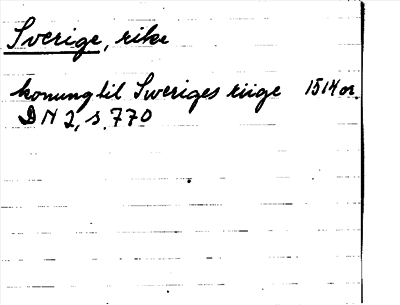 Sverige, rike
konung til Sweriges riige 1514 or.
DN 2, s. 770